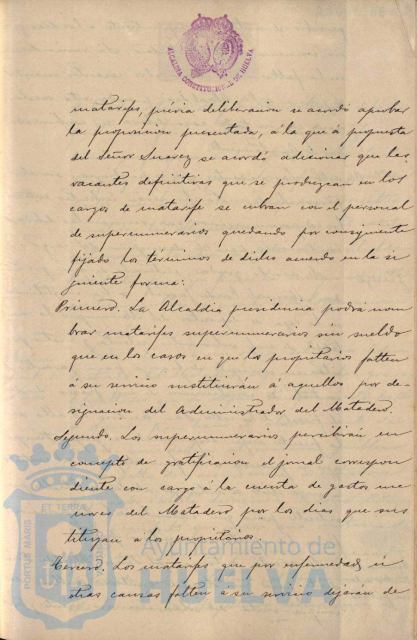 ALCALDIA CONSTITUCIONAL DE HUELVA
matarifes, prévia deliberacion se acordó aprobar
la proposicion presentada, á la que á propuesta
del Señor Suarez se acordó adicionar que las
vacantes definitivas que se produzcan en los
cargos de matarife se cubran con el personal
de supernumerarios quedando por consiguiente
fijado los términos de dicho acuerdo en la si
guiente forma:
Primero. La Alcaldia presidencia podrá nom
brar matarifes supernumerarios sin sueldo
que en los casos en que los propietarios falten
á su servicio sustituirán á aquellos por de
signacion del Administrador del Matadero.
Segundo. Los supernumerarios percibirán en
concepto de gratificacion el jornal correspon
diente con cargo á la cuenta de gastos me
nores del Matadero por los dias que sus
tituyan a los propietarios.
Tercero. Los matarifes que por enfermedad ú
otras causas falten a su servicio dejarán de
PORTUS MARIS ET TERRAE
Ayuntamiento de
HUELVA